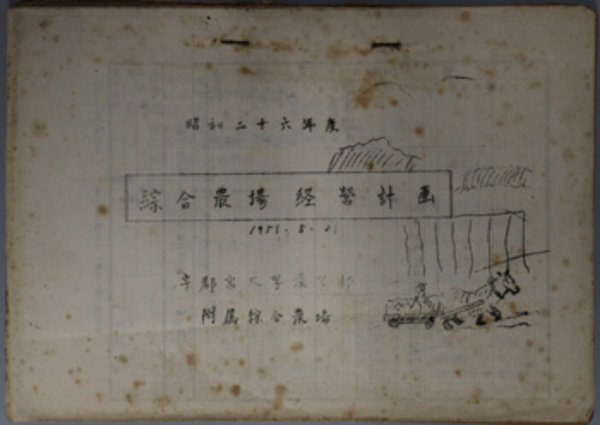 昭和二十六年度
綜合農場経営計画
1951.5.21
宇都宮大学農学部
附属綜合農場